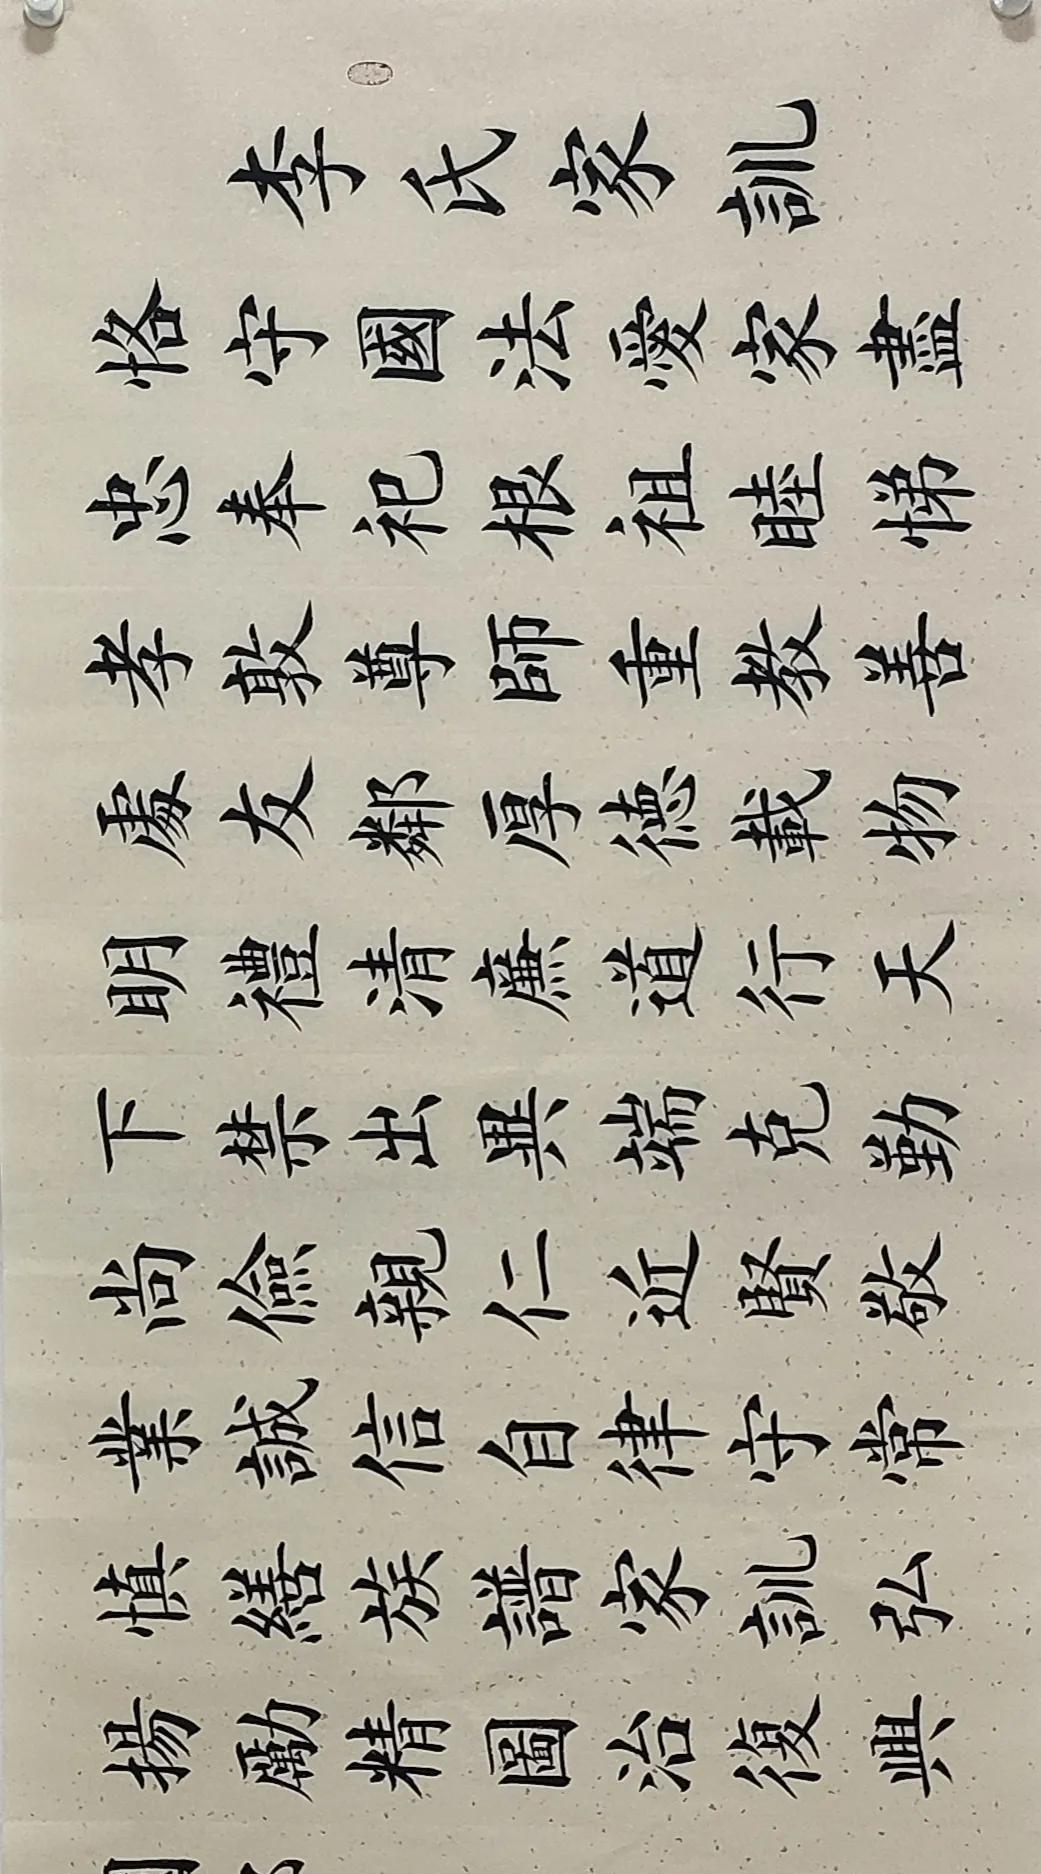 李氏家訓
恪守國法愛家盡
忠奉祀根祖睦悌
孝敦尊師重教善
處友鄰厚德載物
明禮清廉道行天
下禁出異端克勤
尚儉親仁近賢敬
業誠信自律守常
慎繕族譜家訓弘
揚勵精圖治復興